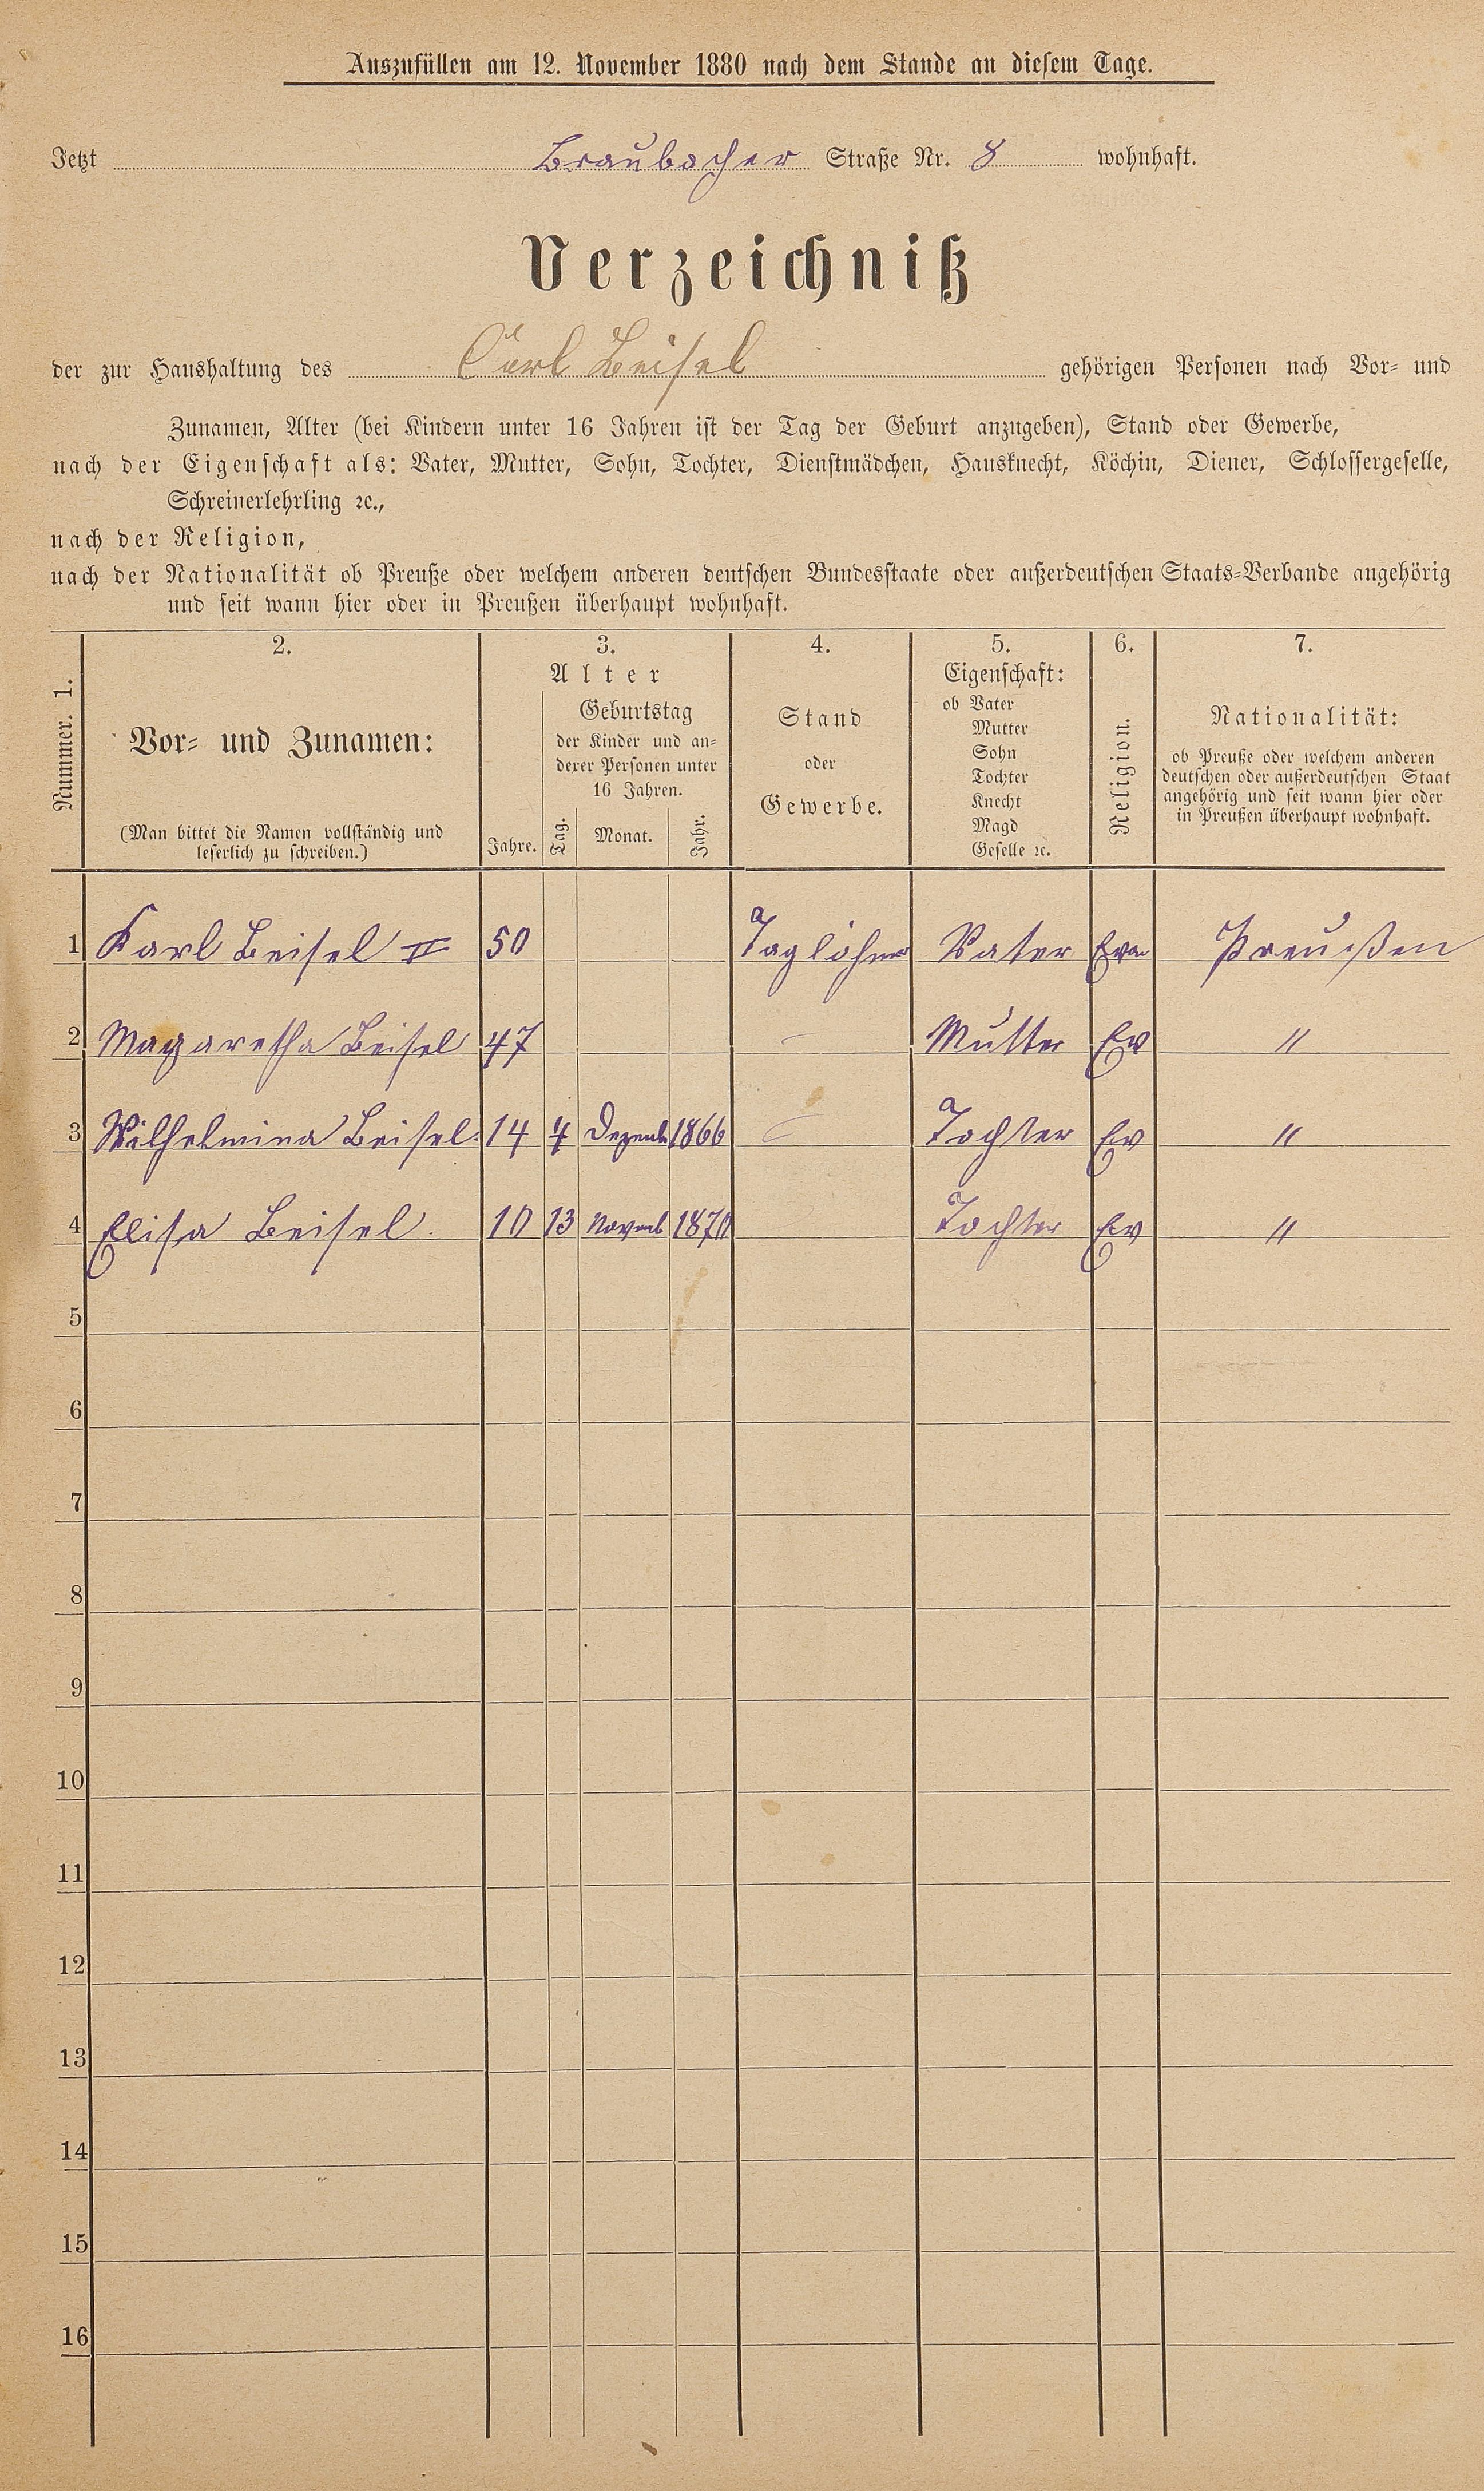 Auszufüllen am 12. November 1880 nach dem Stande an diesem Tage.
Jetzt Braubacher Straße Nr. 8 wohnhaft.
Verzeichniß
der zur Haushaltung des Carl Beisel gehörigen Personen nach Vor- und
Zunamen, Alter (bei Kindern unter 16 Jahren ist der Tag der Geburt anzugeben), Stand oder Gewerbe,
nach der Eigenschaft als: Vater, Mutter, Sohn, Tochter, Dienstmädchen, Hausknecht, Köchin, Diener, Schlossergeselle,
Schreinerlehrling ꝛc.,
nach der Religion,
nach der Nationalität ob Preuße oder welchem anderen deutschen Bundesstaate oder außerdeutschen Staats-Verbande angehörig
und seit wann hier oder in Preußen überhaupt wohnhaft.
Nummer. 1.
2.
Vor- und Zunamen:
(Man bittet die Namen vollständig und
leserlich zu schreiben.)
3.
Alter
Jahre.
Geburtstag
der Kinder und an-
derer Personen unter
16 Jahren.
Tag. Monat. Jahr.
4.
Stand
oder
Gewerbe.
5.
Eigenschaft:
ob Vater
Mutter
Sohn
Tochter
Knecht
Magd
Geselle ꝛc.
6.
Religion.
7.
Nationalität:
ob Preuße oder welchem anderen
deutschen oder außerdeutschen Staat
angehörig und seit wann hier oder
in Preußen überhaupt wohnhaft.
1 Karl Beisel II 50 Taglöhner Vater Evan Preußen
2 Magaretha Beisel 47 – Mutter Ev "
3 Wilhelmina Beisel. 14 4 Dezemb 1866 – Tochter Ev "
4 Elisa Beisel. 10 13 Novemb 1870 Tochter Ev "
5
6
7
8
9
10
11
12
13
14
15
16